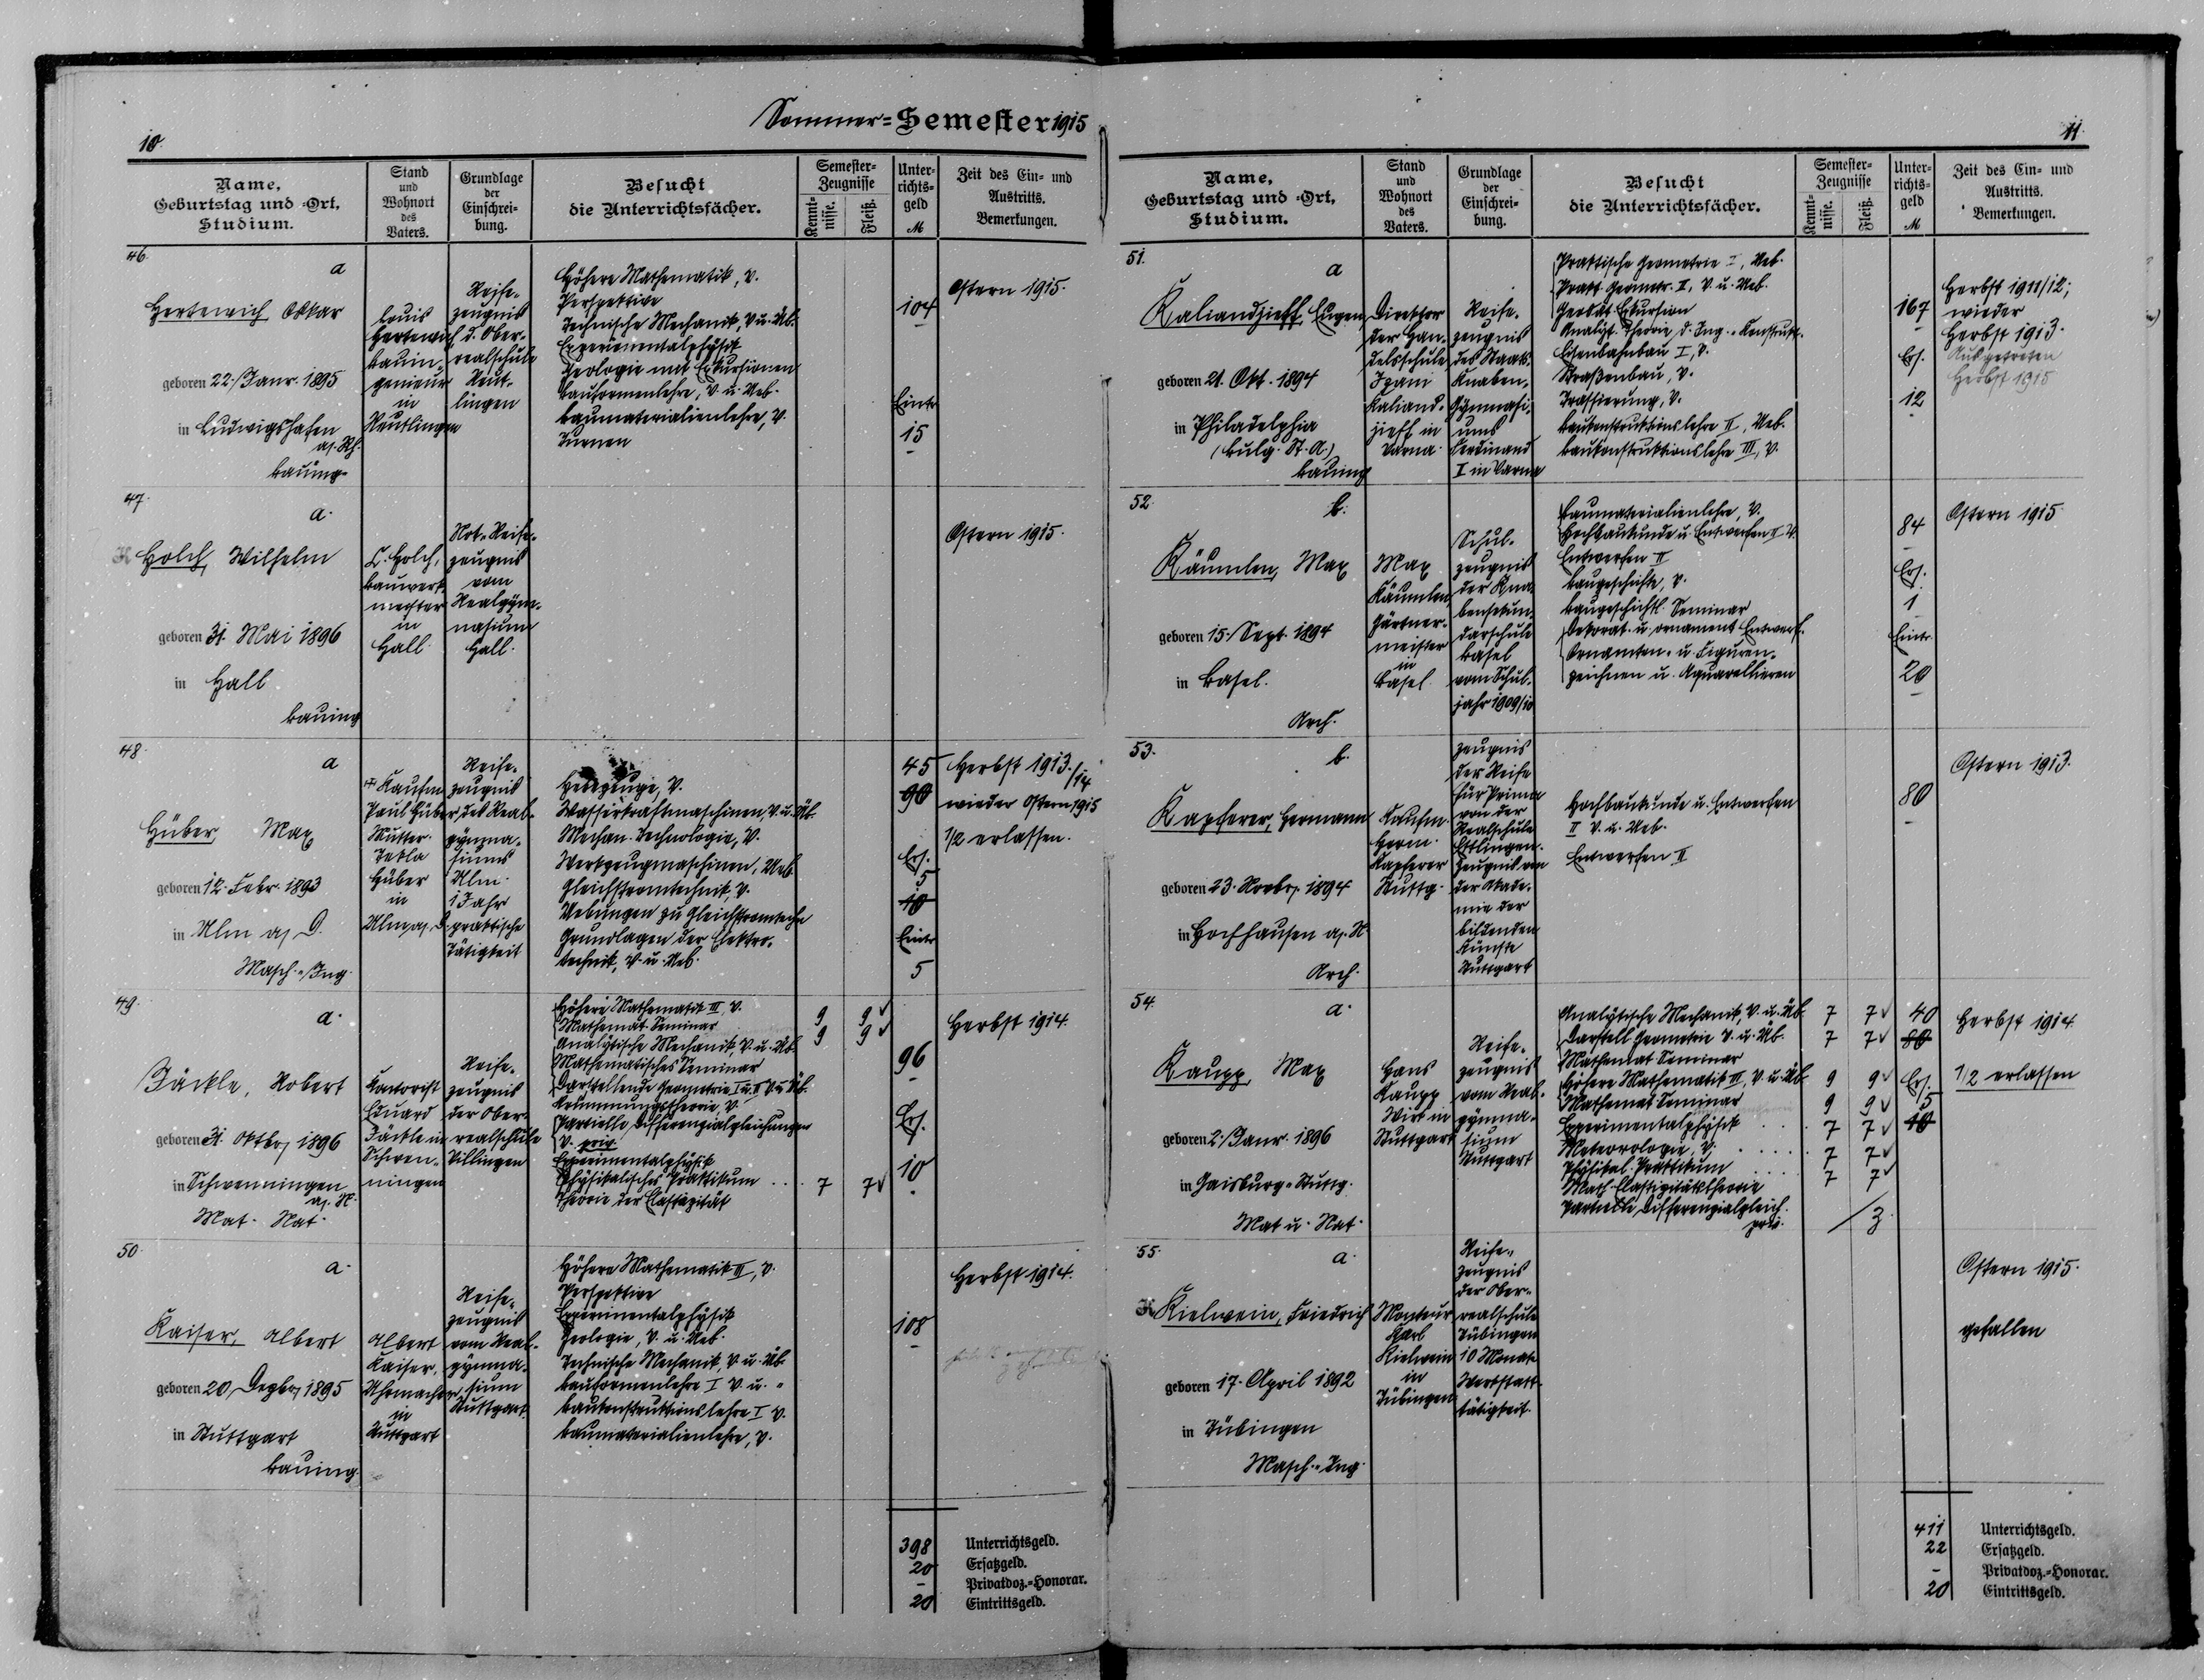 Sommer=Semester 1915
10.
Name,
Geburtstag und =Ort,
Studium.
Stand
und
Wohnort
des
Vaters.
Grundlage
der
Einschrei-
bung.
Besucht
die Unterrichtsfächer.
Semester-
Zeugnisse
Kennt-
nisse.
Fleiß.
Unter-
richts-
geld
M
Zeit des Ein- und
Austritts.
Bemerkungen.
46.
a
Hertewich Oskar
geboren 22. Janr. 1895
in Ludwigshafen
a/. Rh.
Bauing.
Louis
Hertewich
Bauin-
genieur
in
Reutlingen
Reife-
zeugnis
d. Ober-
realschule
Reut-
lingen
Höhere Mathematik, V.
Perspektive
Technische Mechanik, V. u. Üb.
Experimentalphysik
Geologie mit Exkursionen
Bauformenlehre, V. u. Ueb.
Baumaterialienlehre, V.
Turnen
104
Eintr.
15
Ostern 1915.
47.
a.
Holch, Wilhelm
geboren 31. Mai 1896
in Hall
Bauing
L. Holch,
Bauwerk-
meister
in
Hall.
Not-Reife-
zeugnis
vom
Realgym-
nasium
Hall.
Ostern 1915.
48.
a
Huber Max
geboren 12. Febr. 1893
in Ulm a/ D.
Masch.-Ing.
Kaufm.
Paul Huber
Mutter:
Tekla
Huber
in
Ulm a/. D.
Reife-
zeugnis
des Real-
gymna-
siums
Ulm.
1 Jahr
praktische
Tätigkeit
Hebezeuge, V.
Wasserkraftmaschinen, V. u. Üb.
Mechan. Technologie, V.
Werkzeugmaschinen, Ueb.
Gleichstromtechnik, V.
Uebungen zu Gleichstromtechn
Grundlagen der Elektro-
technik, V. u. Ueb.
45
90
Ers.
5
10
Eintr
5
Herbst 1913/14
wieder Ostern 1915
1/2 erlassen.
49.
a.
Jäckle, Robert
geboren 31. Oktbr. 1896
in Schwenningen
a/. N.
Mat. Nat.
Kontorist
Eduard
Jäckle in
Schwen-
ningen
Reife-
zeugnis
der Ober-
realschule
Villingen
Höhere Mathematik III, V.
Mathemat. Seminar
Analytische Mechanik, V. u. Üb.
Mathematisches Seminar
Darstellende Geometrie I u. II V. u. Üb.
Krümmungstheorie, V.
Partielle Differenzialgleichungen
V. priv.
Experimentalphysik
Physikalisches Praktikum . . .
Theorie der Elastizität
9 9
9 9
7 7
96
Ers.
10
Herbst 1914.
50.
a.
Kaiser, Albert
geboren 20. Dezbr. 1895
in Stuttgart
Bauing.
Albert
Kaiser,
Uhrmacher
in
Stuttgart
Reife-
zeugnis
vom Real-
gymna-
sium
Stuttgart.
Höhere Mathematik III, V.
Perspektive
Experimentalphysik
Geologie, V. u. Ueb.
Technische Mechanik, V. u. Üb.
Bauformenlehre I V. u. "
Baukonstruktionslehre I V.
Baumaterialienlehre, V.
108
Herbst 1914.
398 Unterrichtsgeld.
20 Ersatzgeld.
- Privatdoz.-Honorar.
20 Eintrittsgeld.
11.
Name,
Geburtstag und =Ort,
Studium.
Stand
und
Wohnort
des
Vaters.
Grundlage
der
Einschrei-
bung.
Besucht
die Unterrichtsfächer.
Semester-
Zeugnisse
Kennt-
nisse.
Fleiß.
Unter-
richts-
geld
M
Zeit des Ein- und
Austritts.
Bemerkungen.
51.
a
Kaliandjieff, Eugen
geboren 21. Okt. 1894
in Philadelphia
(Bulg. St. A.)
Bauing
Direktor
der Han-
delsschule
Izani
Kaliand-
jieff in
Varna.
Reife-
zeugnis
des Staats-
Knaben-
Gymnasi-
ums
Ferdinand
I in Varna
Praktische Geometrie I, Ueb.
Prakt. Geometr. II, V. u. Ueb.
Geodät. Exkursion
Analyt. Theorie d. Ing.-Konstrukt.
Eisenbahnbau I, V.
Straßenbau, V.
Trassierung, V.
Baukonstruktionslehre II, Ueb.
Baukonstruktionslehre III, V.
167
Ers.
12
Herbst 1911/12;
wieder
Herbst 1913.
Ausgetreten
Herbst 1915
52.
b.
Käumlen, Max
geboren 15. Sept. 1894
in Basel.
Arch.
Max
Käumlen,
Gärtner-
meister
in
Basel.
Schul-
zeugnis
der Kna-
bensekun-
darschule
Basel
vom Schul-
jahr 1909/10
Baumaterialienlehre, V.
Hochbaukunde u. Entwerfen II V.
Entwerfen II
Baugeschichte, V.
Baugeschichtl. Seminar
Dekorat. u. ornament. Entwerf.
Ornamenten- u. Figuren-
zeichnen u. Aquarellieren
84
Ers.
1
Eintr.
20
Ostern 1915
53.
b.
Kapferer, Hermann
geboren 23. Novbr. 1894
in Hochhausen a/. N.
Arch.
Kaufm.
Herm.
Kapferer
Stuttg.
Zeugnis
der Reife
für Prima
von der
Realschule
Ettlingen.
Zeugnis von
der Akade-
mie der
bildenden
Künste
Stuttgart
Hochbaukunde u. Entwerfen
II V. u. Ueb.
Entwerfen II
80
Ostern 1913.
54.
a.
Kaupp Max
geboren 2. Janr. 1896
in Gaisburg-Stuttg.
Mat u. Nat.
Hans
Kaupp
Wirt in
Stuttgart
Reife-
zeugnis
vom Real-
gymna-
sium
Stuttgart
Analytische Mechanik, V. u. Üb.
Darstell. Geometrie V. u. Üb.
Mathemat. Seminar
Höhere Mathematik III, V. u. Üb.
Mathemat. Seminar
Experimentalphysik . . .
Meteorologie, V. . . . . .
Physikal. Praktikum . . . .
Math. Elastizitätstheorie
Partielle Differenzialgleich.
priv.
7 7
7 7
9 9
9 9
7 7
7 7
7 7
3.
40
80
Ers.
5
10
Herbst 1914
1/2 erlassen
55.
a.
Kielwein, Friedrich
geboren 17. April 1892
in Tübingen
Masch.-Ing.
Monteur
Karl
Kielwein
in
Tübingen
Reife-
zeugnis
der Ober-
realschule
Tübingen
10 Monate
Werkstatt-
tätigkeit.
Ostern 1915.
gefallen
411 Unterrichtsgeld.
22 Ersatzgeld.
- Privatdoz.-Honorar.
20 Eintrittsgeld.